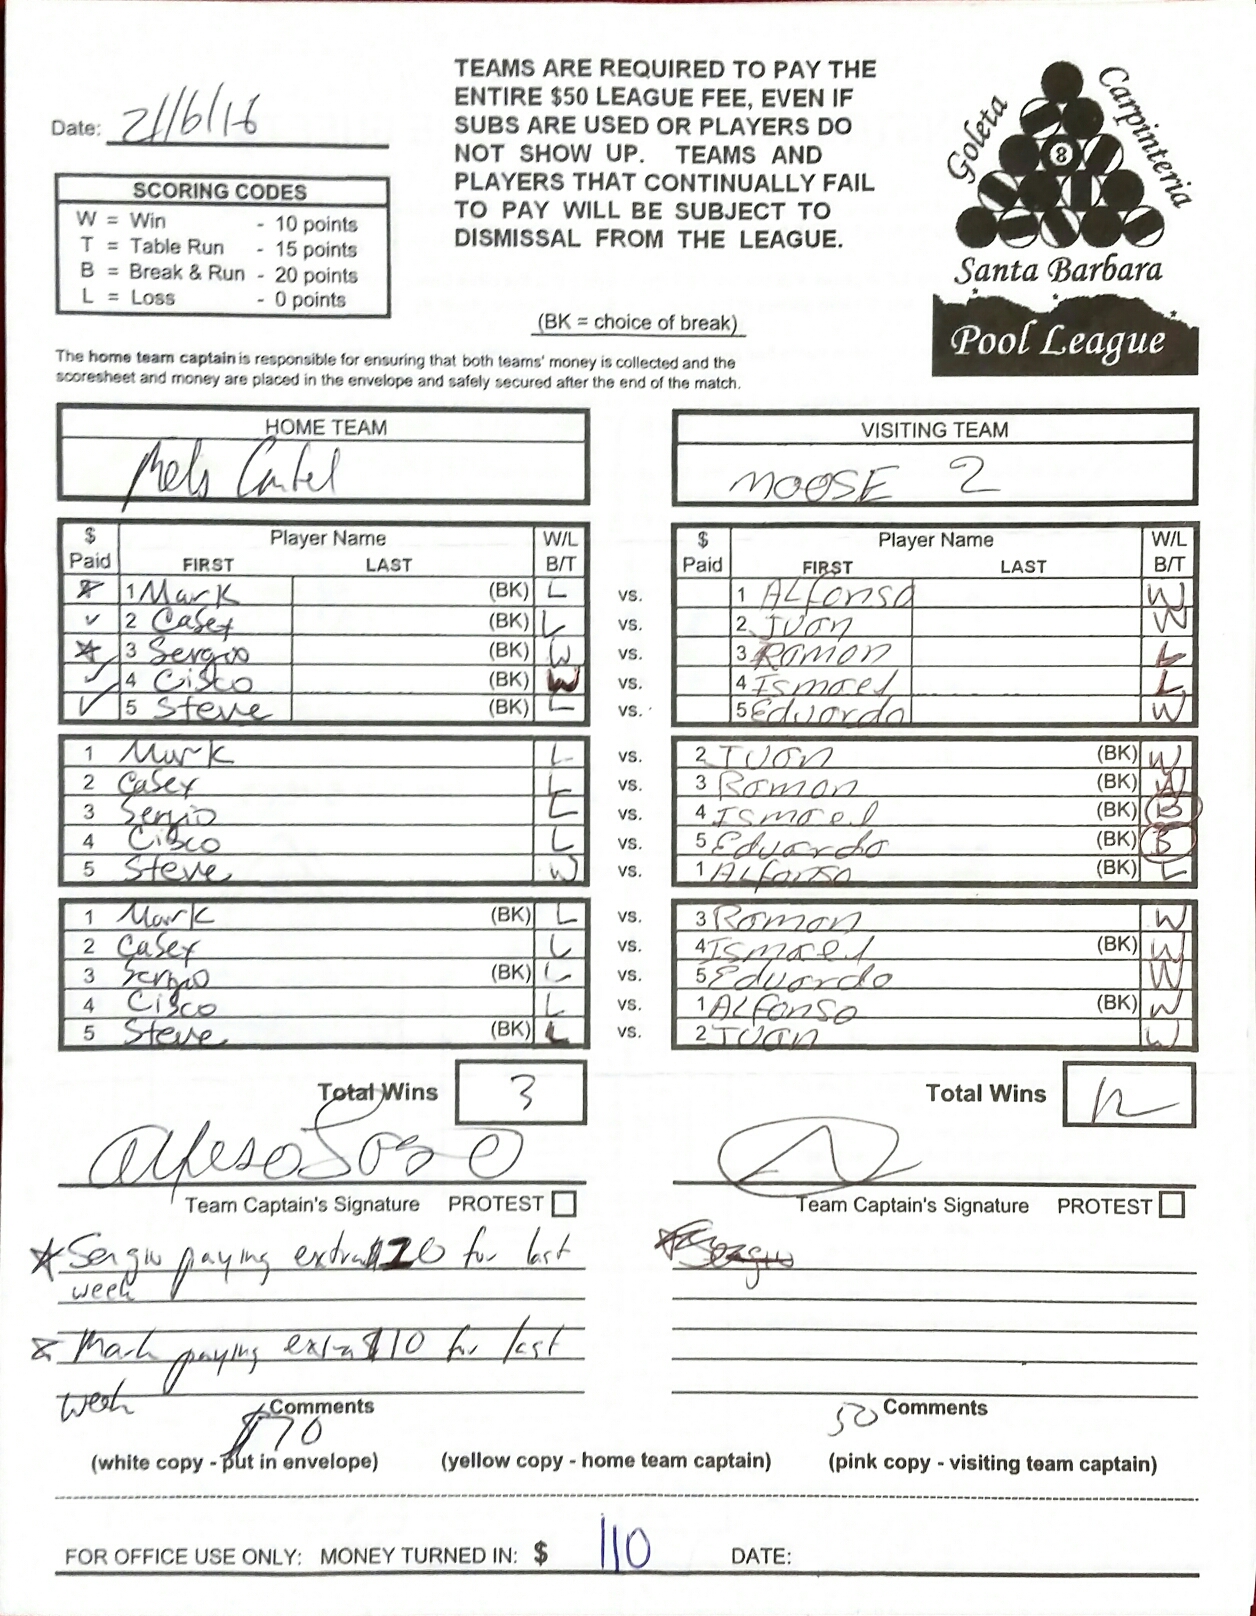 Date: 2/16/16
TEAMS ARE REQUIRED TO PAY THE
ENTIRE $50 LEAGUE FEE, EVEN IF
SUBS ARE USED OR PLAYERS DO
NOT SHOW UP. TEAMS AND
PLAYERS THAT CONTINUALLY FAIL
TO PAY WILL BE SUBJECT TO
DISMISSAL FROM THE LEAGUE.
(BK = choice of break)
Goleta
Carpinteria
8
Santa Barbara
Pool League
SCORING CODES
W = Win - 10 points
T = Table Run - 15 points
B = Break & Run - 20 points
L = Loss - 0 points
The home team captain is responsible for ensuring that both teams' money is collected and the
scoresheet and money are placed in the envelope and safely secured after the end of the match.
HOME TEAM
Mels Cartel
VISITING TEAM
MOOSE 2
$ Paid Player Name FIRST LAST W/L B/T
$ Paid Player Name FIRST LAST W/L B/T
1 Mark (BK) L vs. 1 Alfonso W
2 Casey (BK) L vs. 2 Ivan W
3 Sergio (BK) W vs. 3 Ramon L
4 Cisco (BK) W vs. 4 Ismael L
5 Steve (BK) L vs. 5 Eduardo W
1 Mark L vs. 2 Ivan (BK) W
2 Casey L vs. 3 Ramon (BK) W
3 Sergio L vs. 4 Ismael (BK) B
4 Cisco L vs. 5 Eduardo (BK) B
5 Steve W vs. 1 Alfonso (BK) L
1 Mark (BK) L vs. 3 Ramon W
2 Casey L vs. 4 Ismael (BK) W
3 Sergio (BK) L vs. 5 Eduardo W
4 Cisco L vs. 1 Alfonso (BK) W
5 Steve (BK) L vs. 2 Ivan W
Total Wins 3
Total Wins 12
Team Captain's Signature PROTEST
Team Captain's Signature PROTEST
Sergio paying extra $20 for last
week
Mark paying extra $10 for last
week
Sergio
Comments
$70
50 Comments
(white copy - put in envelope) (yellow copy - home team captain) (pink copy - visiting team captain)
FOR OFFICE USE ONLY: MONEY TURNED IN: $ 110 DATE: